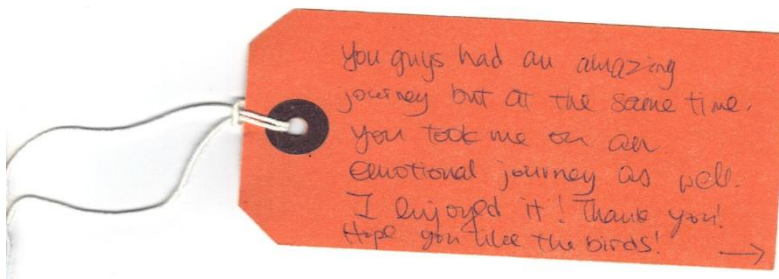 You guys had an amazing
journey but at the same time.
you took me on an
emotional journey as well.
I enjoyed it! Thank you!
Hope you like the birds!
→